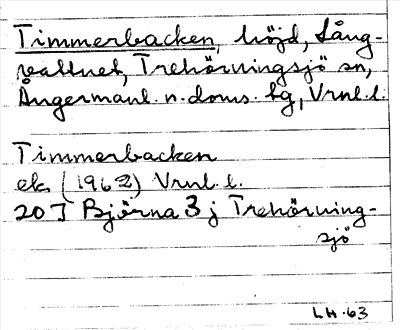 Timmerbacken, höjd, Lång-
vattnet, Trehörningsjö sn,
Ångermanl. n. doms. hg, Vrnl. l.
Timmerbacken
ek (1962) Vrnl. l.
20 I Björna 3 j Trehörning-
sjö
LH.63